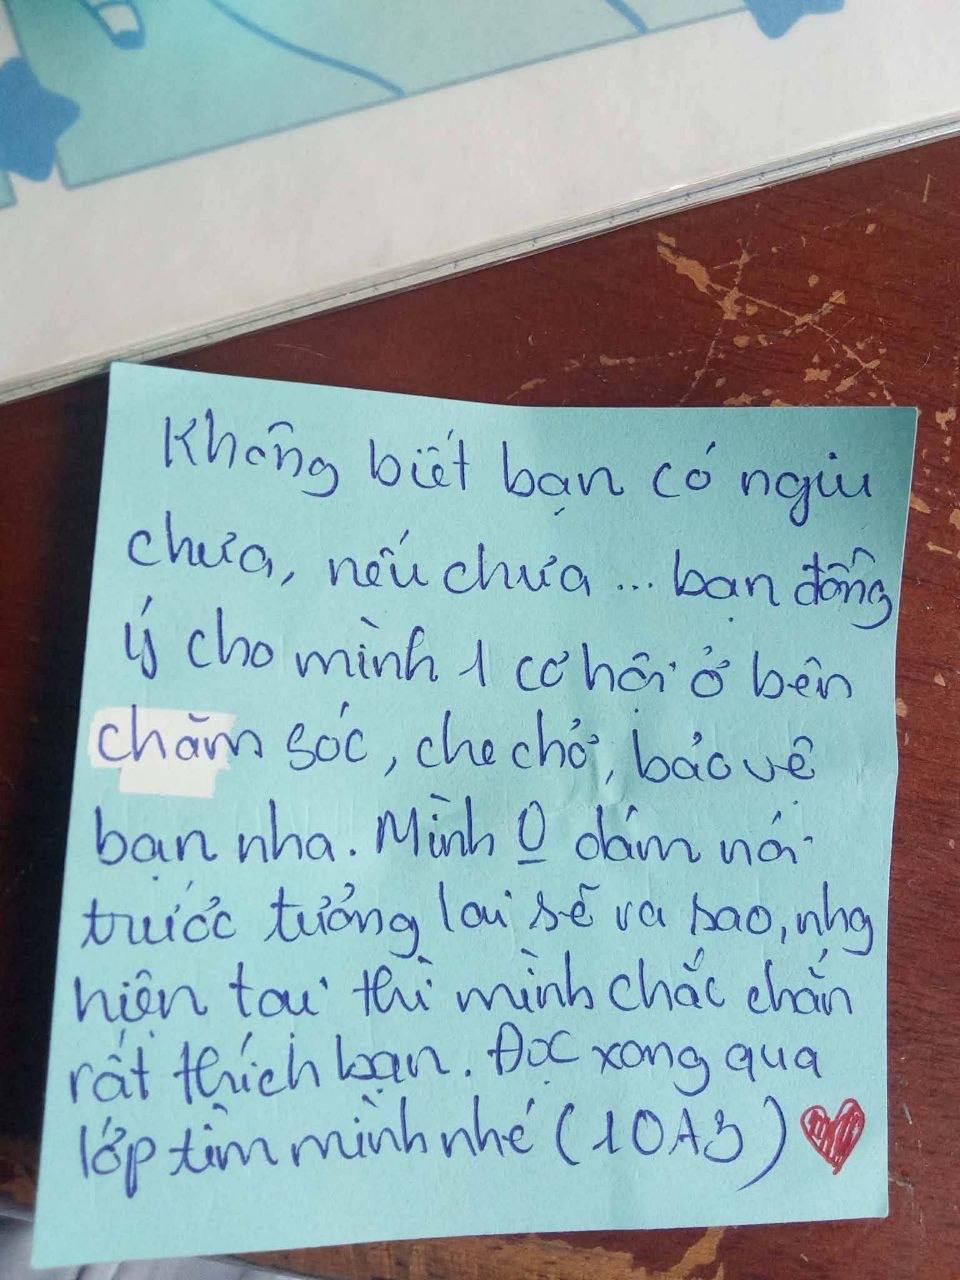 Không biết bạn có ngiu
chưa, nếu chưa... bạn đồng
ý cho mình 1 cơ hội ở bên
chăm sóc, che chở, bảo vê
bạn nha. Mình 0 dám nói
trước tưởng lai sẽ ra sao, nhg
hiện tại thì mình chắc chắn
rất thích bạn. Đọc xong qua
lớp tìm mình nhé (10A3)